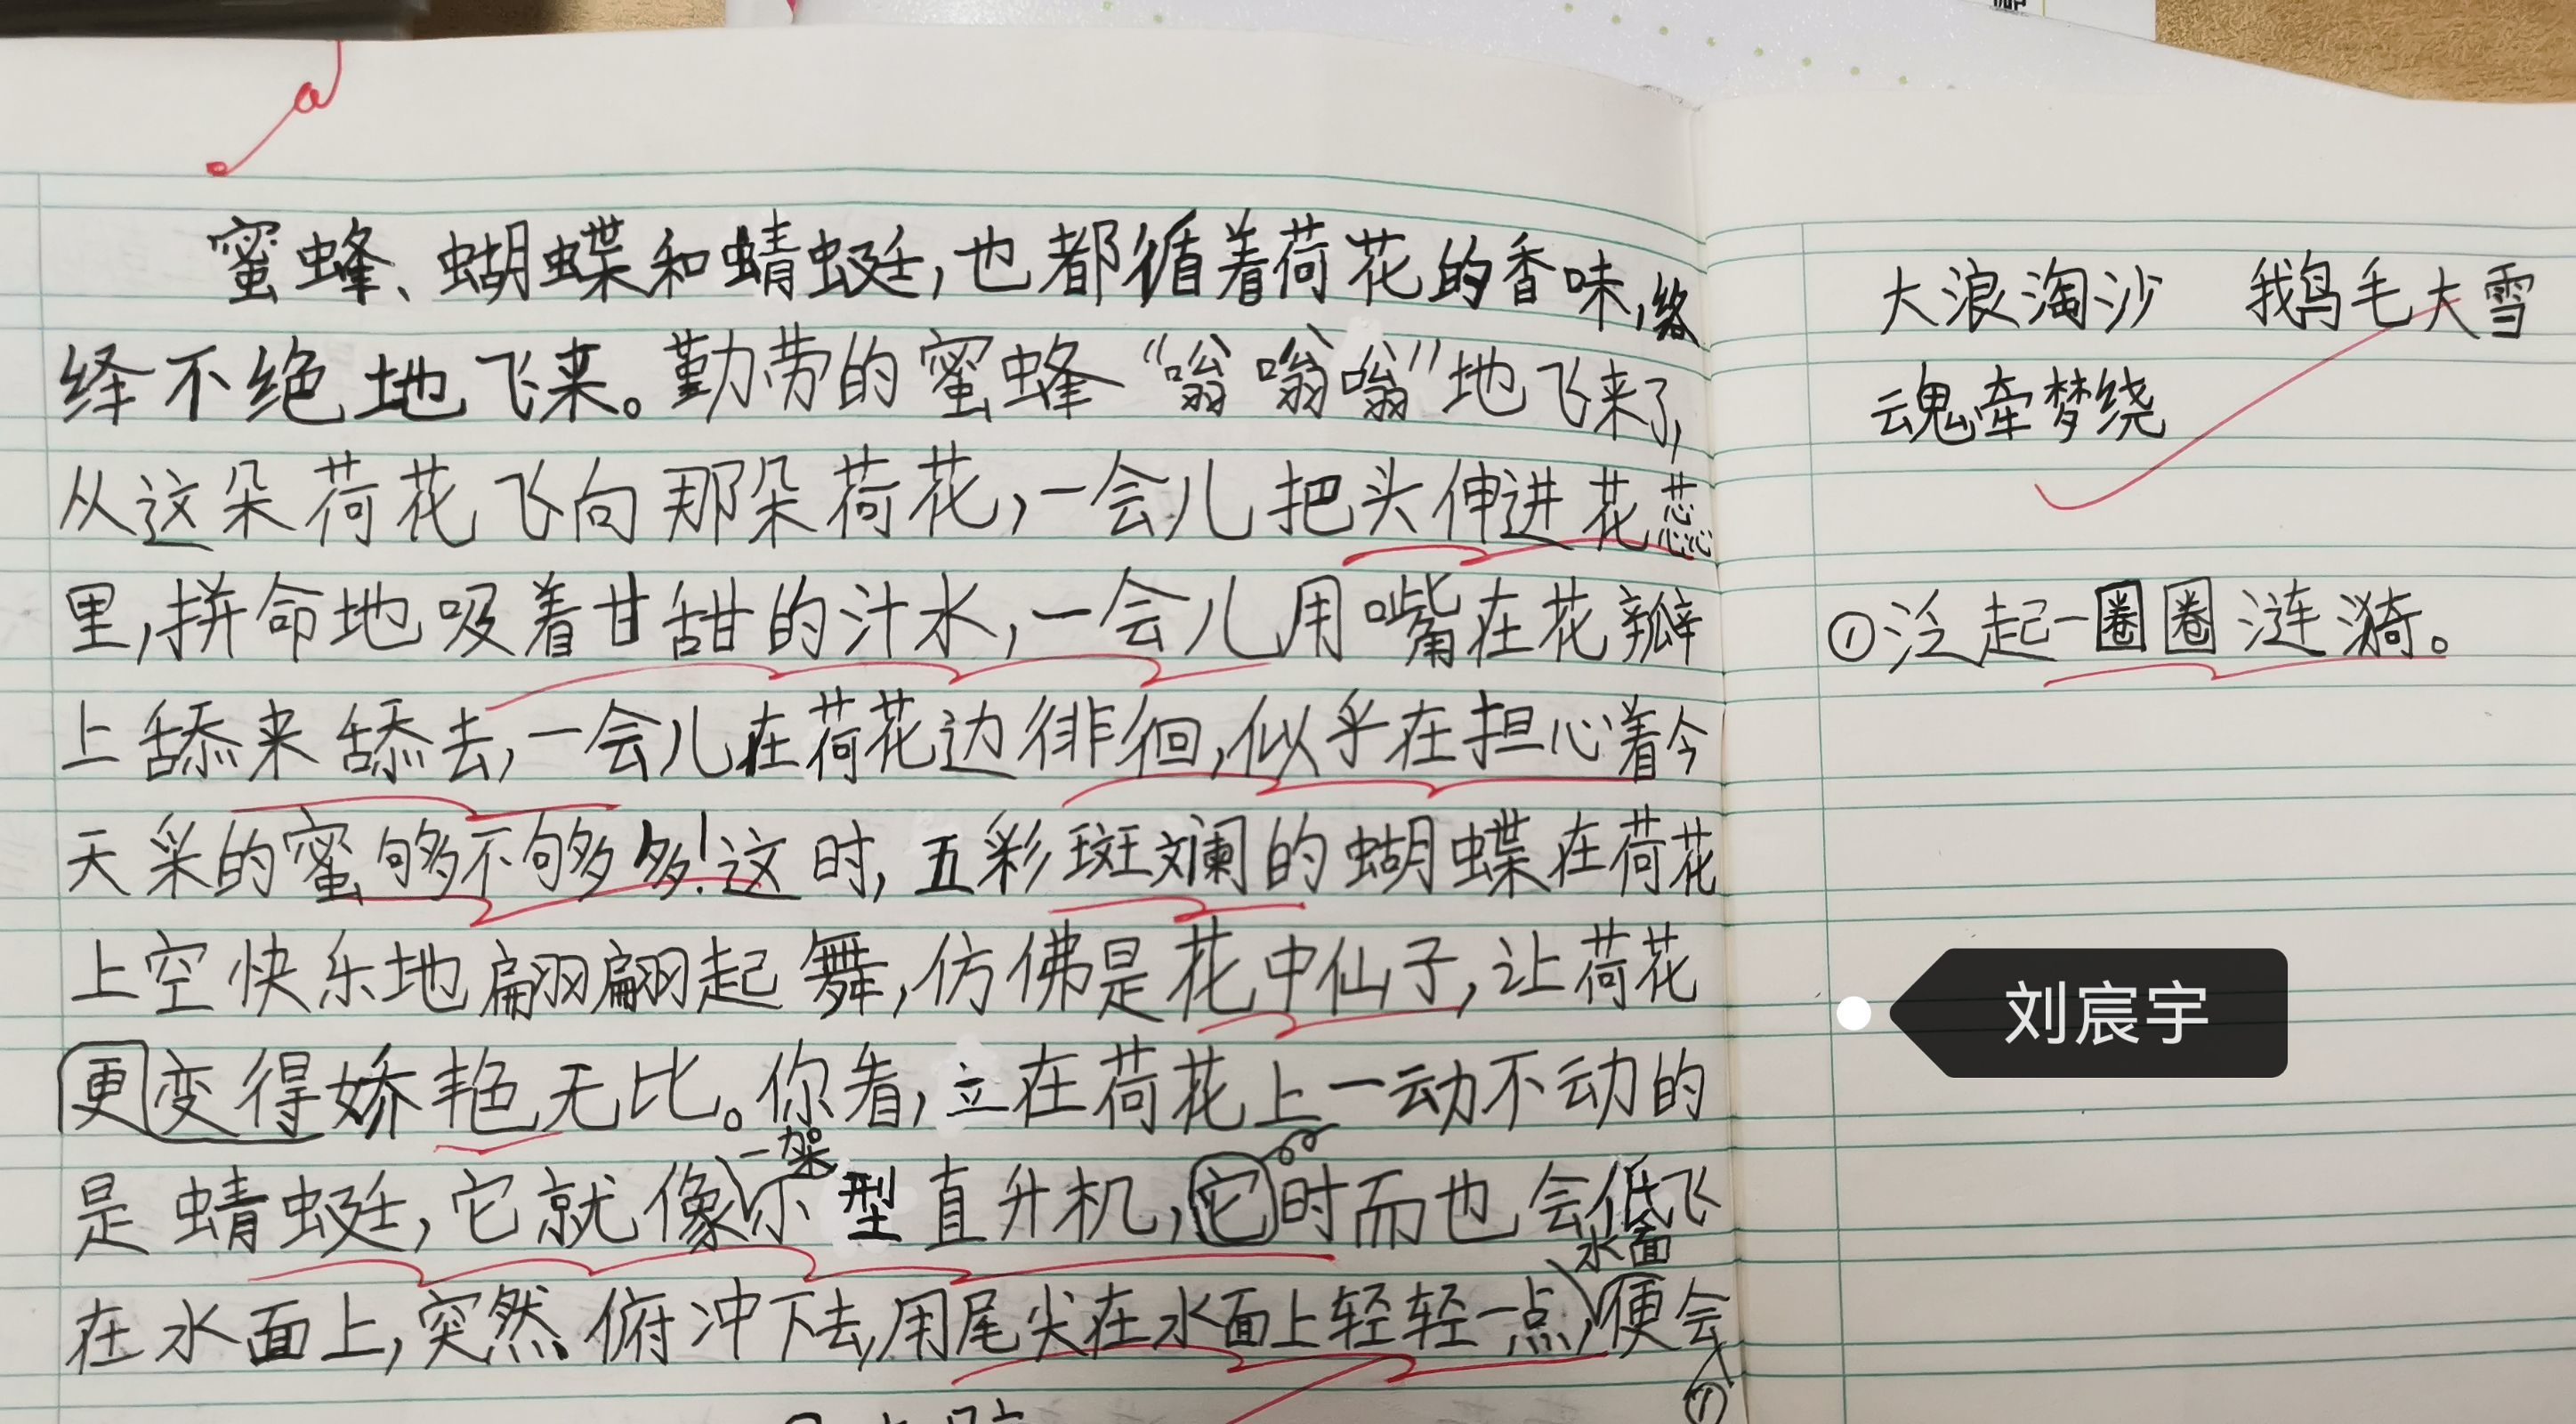 蜜蜂、蝴蝶和蜻蜓,也都循着荷花的香味,络
绎不绝地飞来。勤劳的蜜蜂“嗡嗡嗡”地飞来了,
从这朵荷花飞向那朵荷花,一会儿把头伸进花蕊
里,拼命地吸着甘甜的汁水,一会儿用嘴在花瓣
上舔来舔去,一会儿在荷花边徘徊,似乎在担心着今
天采的蜜够不够多!这时,五彩斑斓的蝴蝶在荷花
上空快乐地翩翩起舞,仿佛是花中仙子,让荷花
更变得娇艳无比。你看,立在荷花上一动不动的
一架
是蜻蜓,它就像小型直升机,它时而也会低飞
水面
在水面上,突然俯冲下去,用尾尖在水面上轻轻一点,便会
①
大浪淘沙 鹅毛大雪
魂牵梦绕
①泛起一圈圈涟漪。
刘宸宇